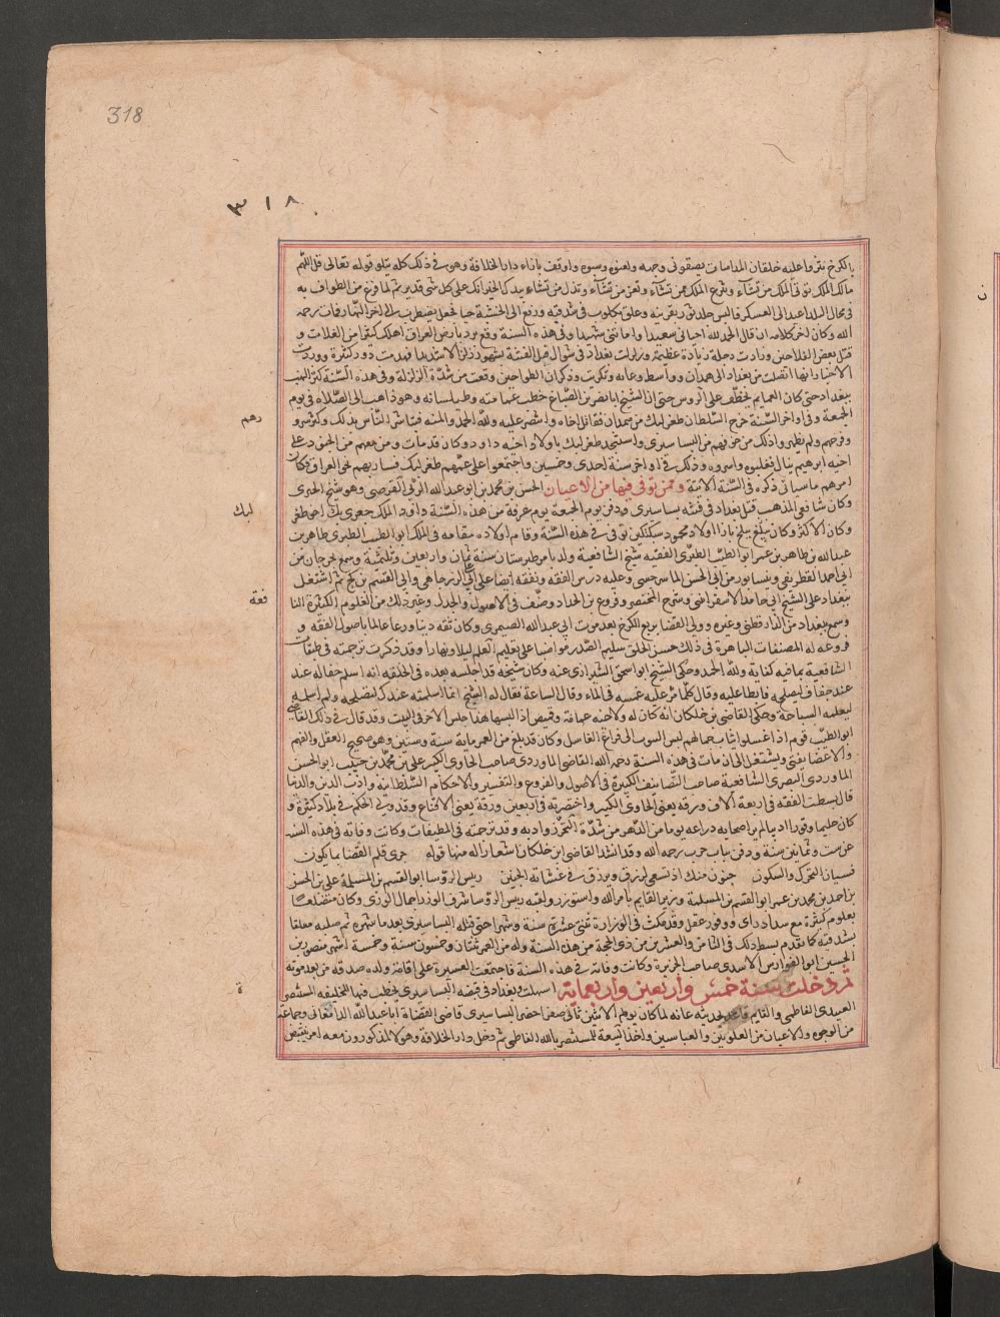 318
٣١٨
بالكرخ نثروا عليه خلقان المداسات وبصقوا في وجهه ولعنوه وسبوه واوقف بازاء دار الخلافة وهو في ذلك كله يتلو قوله تعالى قل اللهم
مالك الملك تؤتي الملك من تشآء وتنزع الملك ممن تشآء وتعز من تشآء وتذل من تشاء بيدك الخير انك على كل شي قدير ثم لما فرغ من الطواف به
في محال البلد اعيد الى العسكر فالبس جلد ثور بقرنيه وعلق بكلوب في شدقيه ورفع الى الخشبة حيا فجعل يضطرب الى اخر النهار فمات رحمه
الله وكان اخر كلامه ان قال الحمد لله احياني سعيدا واماتني شهيدا وفي هذه السنة وقع برد بارض العراق اهلك كثيرا من الغلات و
قتل بعض الفلاحين وزادت دجلة زيادة عظيمة وزلزلت بغداد في شوال قبل الفتنة بشهر زلزالا شديدا فهدمت دور كثيرة ووردت
الاخبار انها اتصلت من بغداد الى همدان وواسط وعانه وتكريت وذكر ان الطواحين وقفت من شدة الزلزلة وفي هذه السنة كثر النهب
ببغداد حتى كان العمايم تخطف على الروس حتى ان الشيخ ابا نصر بن الصباغ خطف عمامته وطيلسانه وهو ذاهب الى الصلاه في يوم
الجمعة وفي اواخر السنة خرج السلطان طغرلبك من همدان فقاتل اخاه وانتصر عليه ولله الحمد والمنه فتباشر الناس بذلك
رهم
وفرحهم ولم يظهروا ذلك من خوفهم من البساسيرى واستنجد طغرلبك باولاد اخيه داود وكان قد مات ومن معهم من الجنود على
اخيه ابرهيم ينال فغلبوه واسروه وذلك في اواخر سنة احدى وخمسين واجتمعوا على عمهم طغرلبك فسار بهم نحو العراق فكان
امرهم ما سياتي ذكره في السنة الاتية وممن توفي فيها من الاعيان الحسن بن محمد بن ابو عبد الله الفرضي وهو شيخ الحربى
وكان شافعي المذهب قتل ببغداد في فتنة بساسيرى ودفن يوم الجمعة يوم عرفة من هذه السنة داود الملك جعري بك اخو طغر
لبك
وكان الاكثر وكان ببلخ بازا اولاد محمود سبكتكين توفي في هذه السنة وقام اولاده مقامه في الملك ابو الطيب الطبرى طاهر بن
عبد الله بن طاهر بن عمر ابو الطيب الطبري الفقيه شيخ الشافعية ولد بامر طبرستان سنة ثمان واربعين وثلثمئة وسمع بجرجان من
ابي احمد الغطريفي وبنيسابور من ابي الحسن الماسرجسى وعليه درس الفقه وتفقه ايضا على ابي الزجاجى وابي القسم بن كج ثم اشتغل
ببغداد على الشيخ ابي حامد الاسفرايني وشرح المختصر وفروع بن الحداد وصنف في الاصول والجدل وغير ذلك من العلوم الكثيرة النا
فعة
وسمع ببغداد من الدارقطني وغيره وولي القضا بربع الكرخ بعد موت ابي عبد الله الصيمري وكان ثقه دينا ورعا عالما باصول الفقه و
فروعه له المصنفات الباهرة في ذلك حسن الخلق سليم الصدر مواضبا على تعليم العلم ليلا ونهارا وقد ذكرت ترجمته في طبقات
الشافعية بما فيه كفاية ولله الحمد وحكى الشيخ ابو اسحق الشيرازى عنه وكان شيخه قد اجلسه بعده في الحلقه انه اسلم خفا له عند
عند خفاف ليصلحه فابطا عليه وقال كلما مر عليه غمسه في الماء وقال الساعة فقال له الشيخ انما اسلمته عندك لتصلحه ولم اسلمه
ليعلمه السباحة وحكى القاضي بن خلكان انه كان له ولاخيه عمامة وقميص اذا لبسها هذا جلس الاخر في البيت وقد قال في ذلك القاضي
ابو الطيب قوم اذا غسلوا اثياب جمالهم لبس البيوت الى فراغ الغاسل وكان قد بلغ من العمر ماية سنة وسنتين وهو صحيح العقل والفهم
والاعضا يفتي ويشتغل الى ان مات في هذه السنة رحمه الله القاضي الماوردي صاحب الحاوى الكبير علي بن محمد بن حبيب ابو الحسن
الماوردى البصرى الشافعية صاحب التصانيف الكثيرة في الاصول والفروع والتفسير والاحكام السلطانية وادب الدين والدنيا
قال بسطت الفقه في اربعة الاف ورقه يعني الحاوى الكبير واختصرته في اربعين ورقة يعني الاقناع وقد ولي الحكم في بلاد كثيرة و
كان حليما وقورا اديبا لم ير اصحابه ذراعه يوما من الدهر من شدة التحرز وادبه وقد ترجمته في الطبقات وكانت وفاته في هذه السنه
عن ست وثمانين سنة ودفن بباب حرب رحمه الله وقد انشد القاضي ابن خلكان اشعارا له منها قوله جرى قلم القضا بما يكون
فسيان التحرك والسكون جنون منك ان تسعى لرزق ويرزق في غشاته الجنين ريس الروسا ابو القسم بن المسلمة علي بن الحسن
بن احمد بن محمد بن عمر ابو القسم بن المسلمة وزير القايم بامر الله واستوزر ولقبه ريس الروسا شرف الوزرا جمال الورى وكان متضلعا
بعلوم كثيرة مع سداد راى ووفور عقل وقد مكث في الوزارة ثنتي عشرة سنة وشهرا حتى قتله البساسيرى بعد ما شهره ثم صلبه معلقا
بشدقه كما تقدم بسط ذلك في الثامن والعشرين من ذي الحجة من هذه السنة وله من العمر ثنتان وخمسون سنة وخمسة اشهر منصور بن
الحسين ابو الفوارس الاسدى صاحب الجزيرة وكانت وفاته في هذه السنة فاجتمعت العشيرة على اقامة ولده صدقه من بعد موته
ثم دخلت سنة خمس واربعين واربعماية استهلت وبغداد في قبضه البساسيرى يخطب فيها للخليفه المستنصر
العبيدى الفاطمي والقايم قاعد بحديثه عانه لما كان يوم الاثنين ثاني صفر احضر البساسيرى قاضي القضاة ابا عبد الله الدامغاني وجماعة
من الوجوه والاعيان من العلويين والعباسيين واخذ البيعة للمستنصر بالله الفاطمي ثم دخل دار الخلافة وهولا المذكورون معه